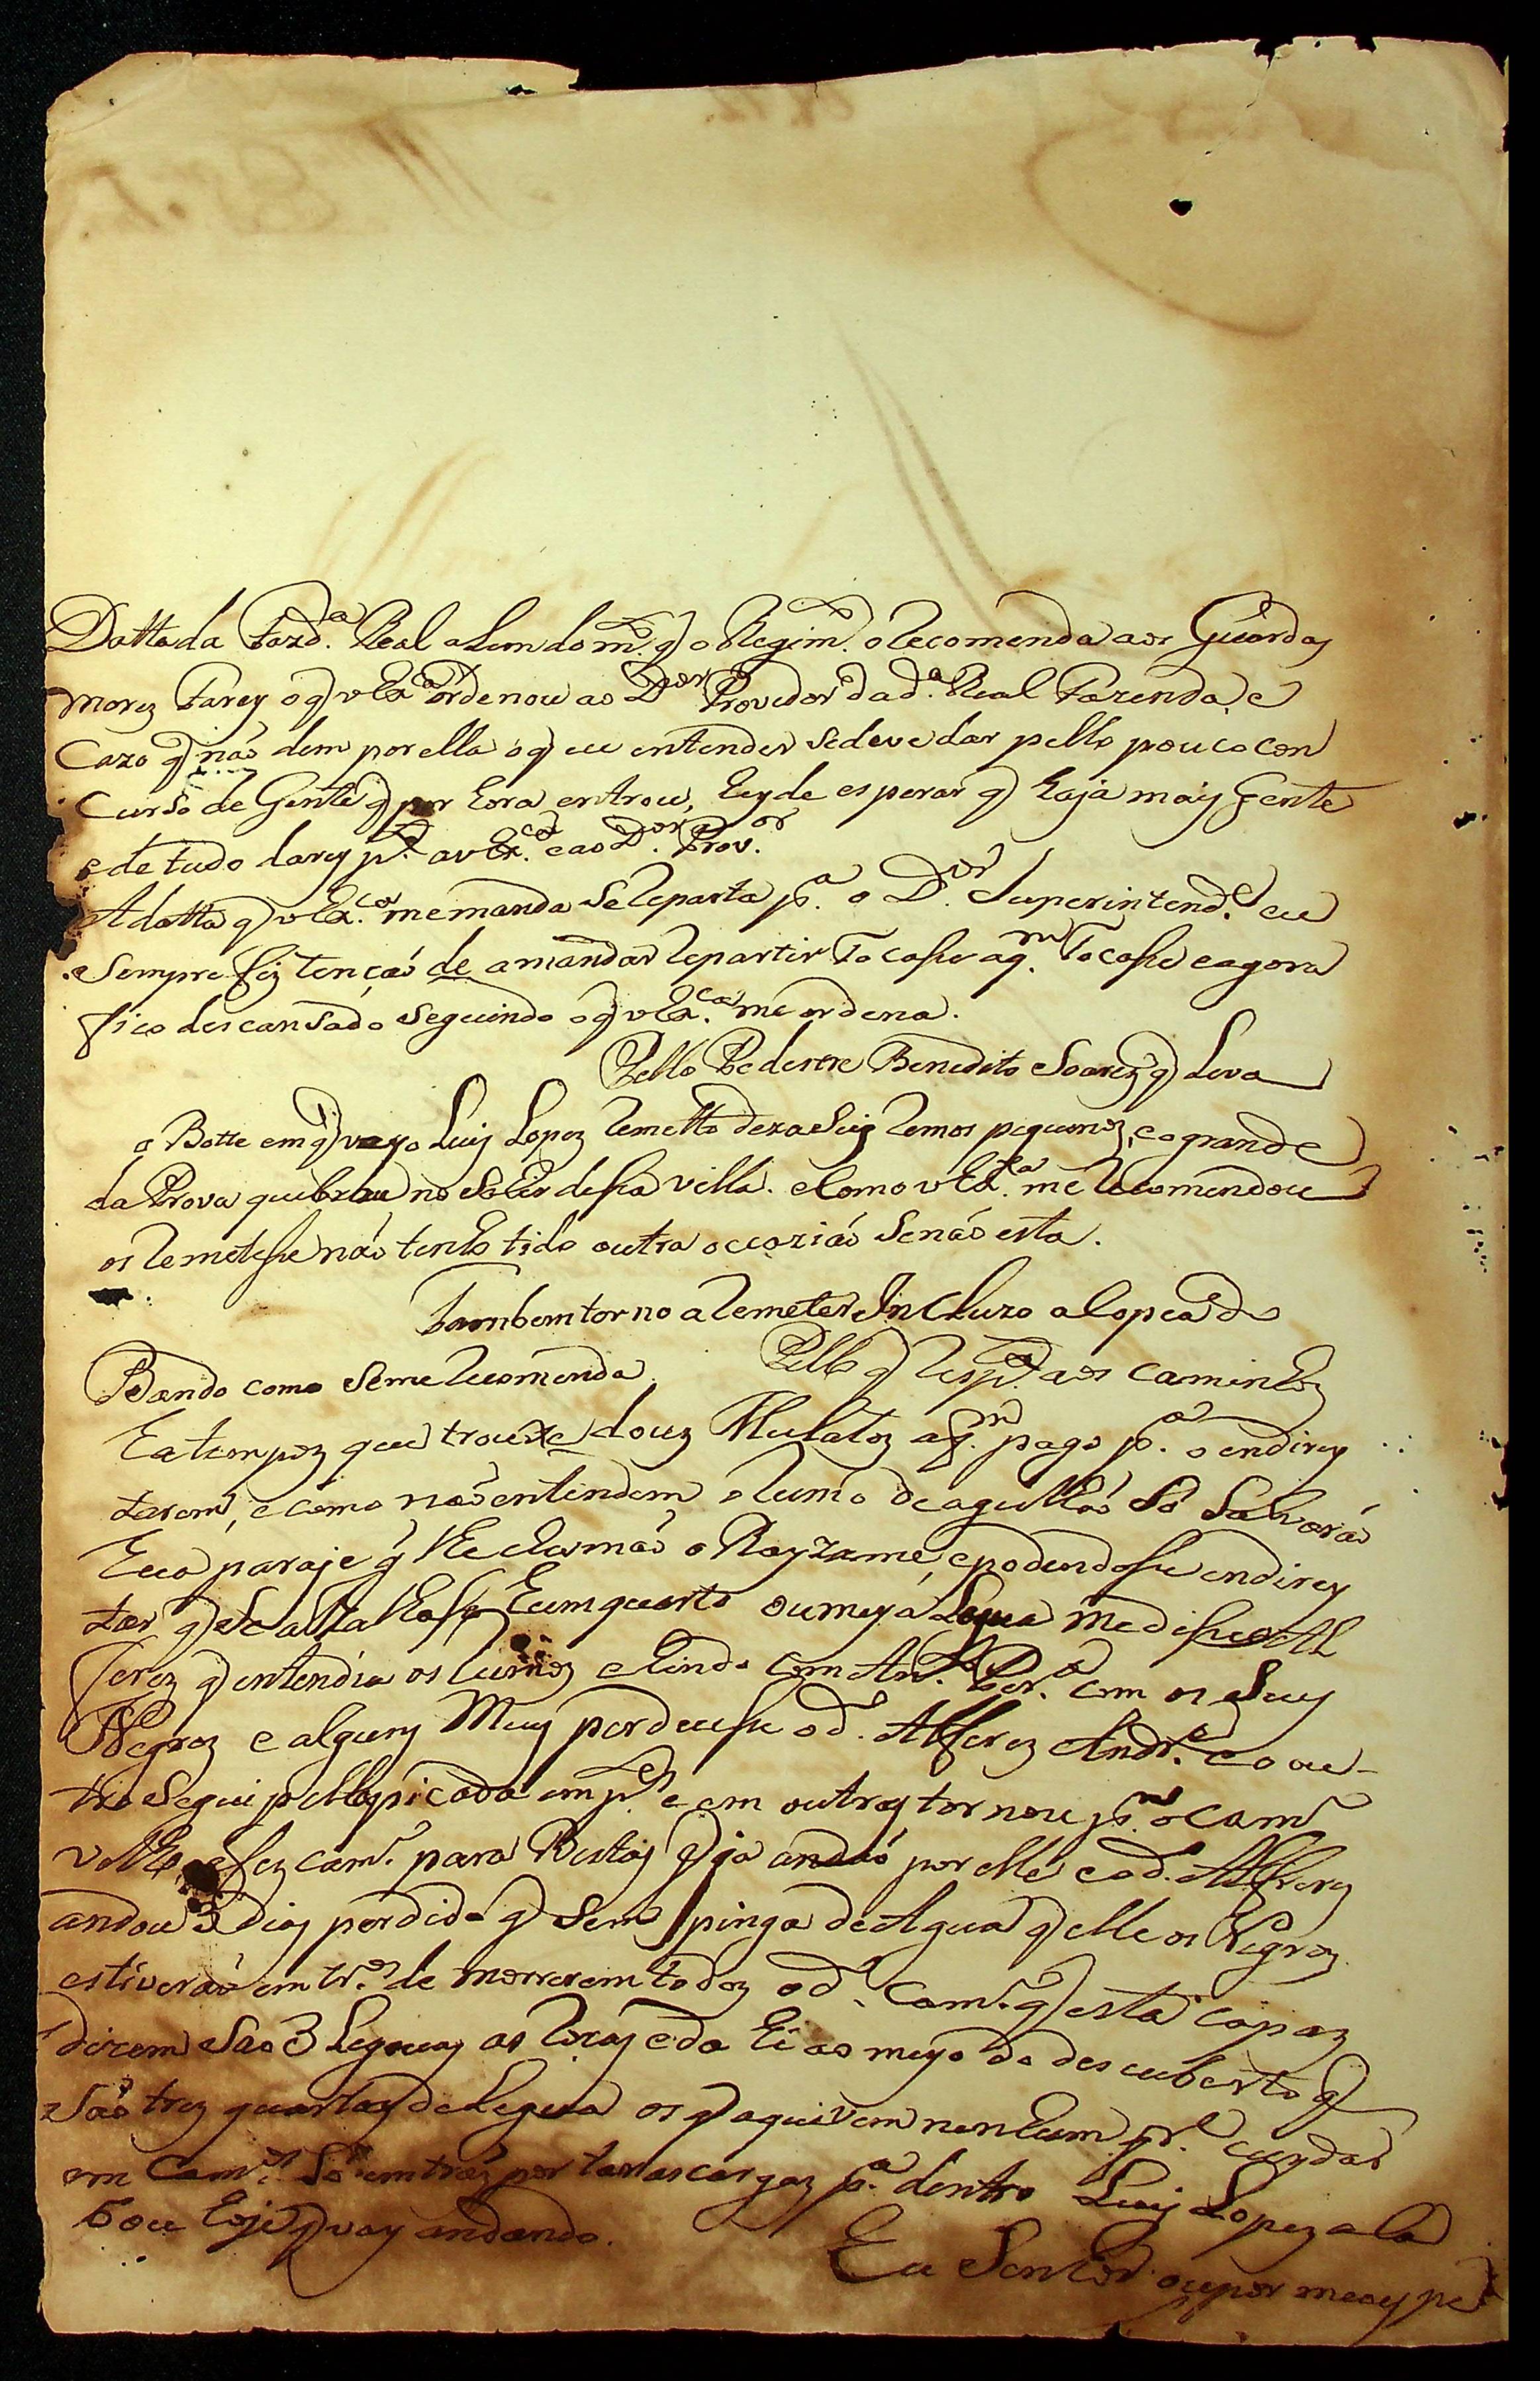 Datta da Fazd.ª Real alem do m.to q̃ o Regim.to o Recomenda aos Guardas
Morez Farey o q̃ v Ex.ª ordenou ao D.or Provedor da d.ª Real Fazenda, e
Cazo q̃ não dem por ella o q̃ eu entender se deve dar pello pouco con
Curso de Gente q̃ por hora entrou, hey de esperar q̃ haja mais gente
e de tudo darey p.te a v Ex.cª e ao D.or Prov.or
A datta q̃ v Ex.cª me manda se Reparta p.ª o D.or Superintend.e eu
Sempre fiz tenção de a mandar Repartir Tocasse a q.m Tocasse e agora
fico descansado seguindo o q̃ v Ex.cª me ordena.
Pello Pedestre Benedito Soarez q̃ Leva
o Botte em q̃ veyo Luis Lopez Remetto dezaseis Remos pequenoz, e o grande
da Prova quebrou no Sahir dessa villa. e Como v Ex.cª me Recomendou
os Remetesse não tenho tido outra occazião Senão esta.
Tambem torno a Remeter Incluzo a Copea do
Bando como Se me Recomenda. Pello q̃ Resp.ta aos Caminhoz
ha tempoz que trouxe douz Mulatoz a q.m pago p.ª o endirey
tarem, e como não entendem o Rumo de agulhão Só Sahirão
hua paraje q̃ lhe chamão o Rayzame, e podendosse endirey
tar q̃ Se atalhasse hum quarto ou meya Legua me disse o Al
ferez q̃ entendia os Rumoz e hindo com Ant.o Per.ª com os Seus
Negroz e alguns Meus perdeusse o d.o Alferez Andr.e e o ou-
tro Segui pella picada em p.te e em outras tornou p.ª o cam.o
velho e fez cam.o para Bestas q̃ ja andão por elle e o d.o Alferez
andou 3 dias perdido q̃ Sem pinga de Agua q̃ elle os Negroz
estiverão em tr.os de morrerem todoz o d.o Cam.o q̃ esta capaz
dizem São 3 Legoas as Rosas e da hi ao meyo do descuberto q̃
São trez quartas de Legua os q̃ aqui vem nenhum q.r cuydar
em Cam.os Só em tranzportar as cargas p.ª dentro Luis Lopez aca
bou hoje q̃ vay andando.
Eu Senhor ou por meus pe